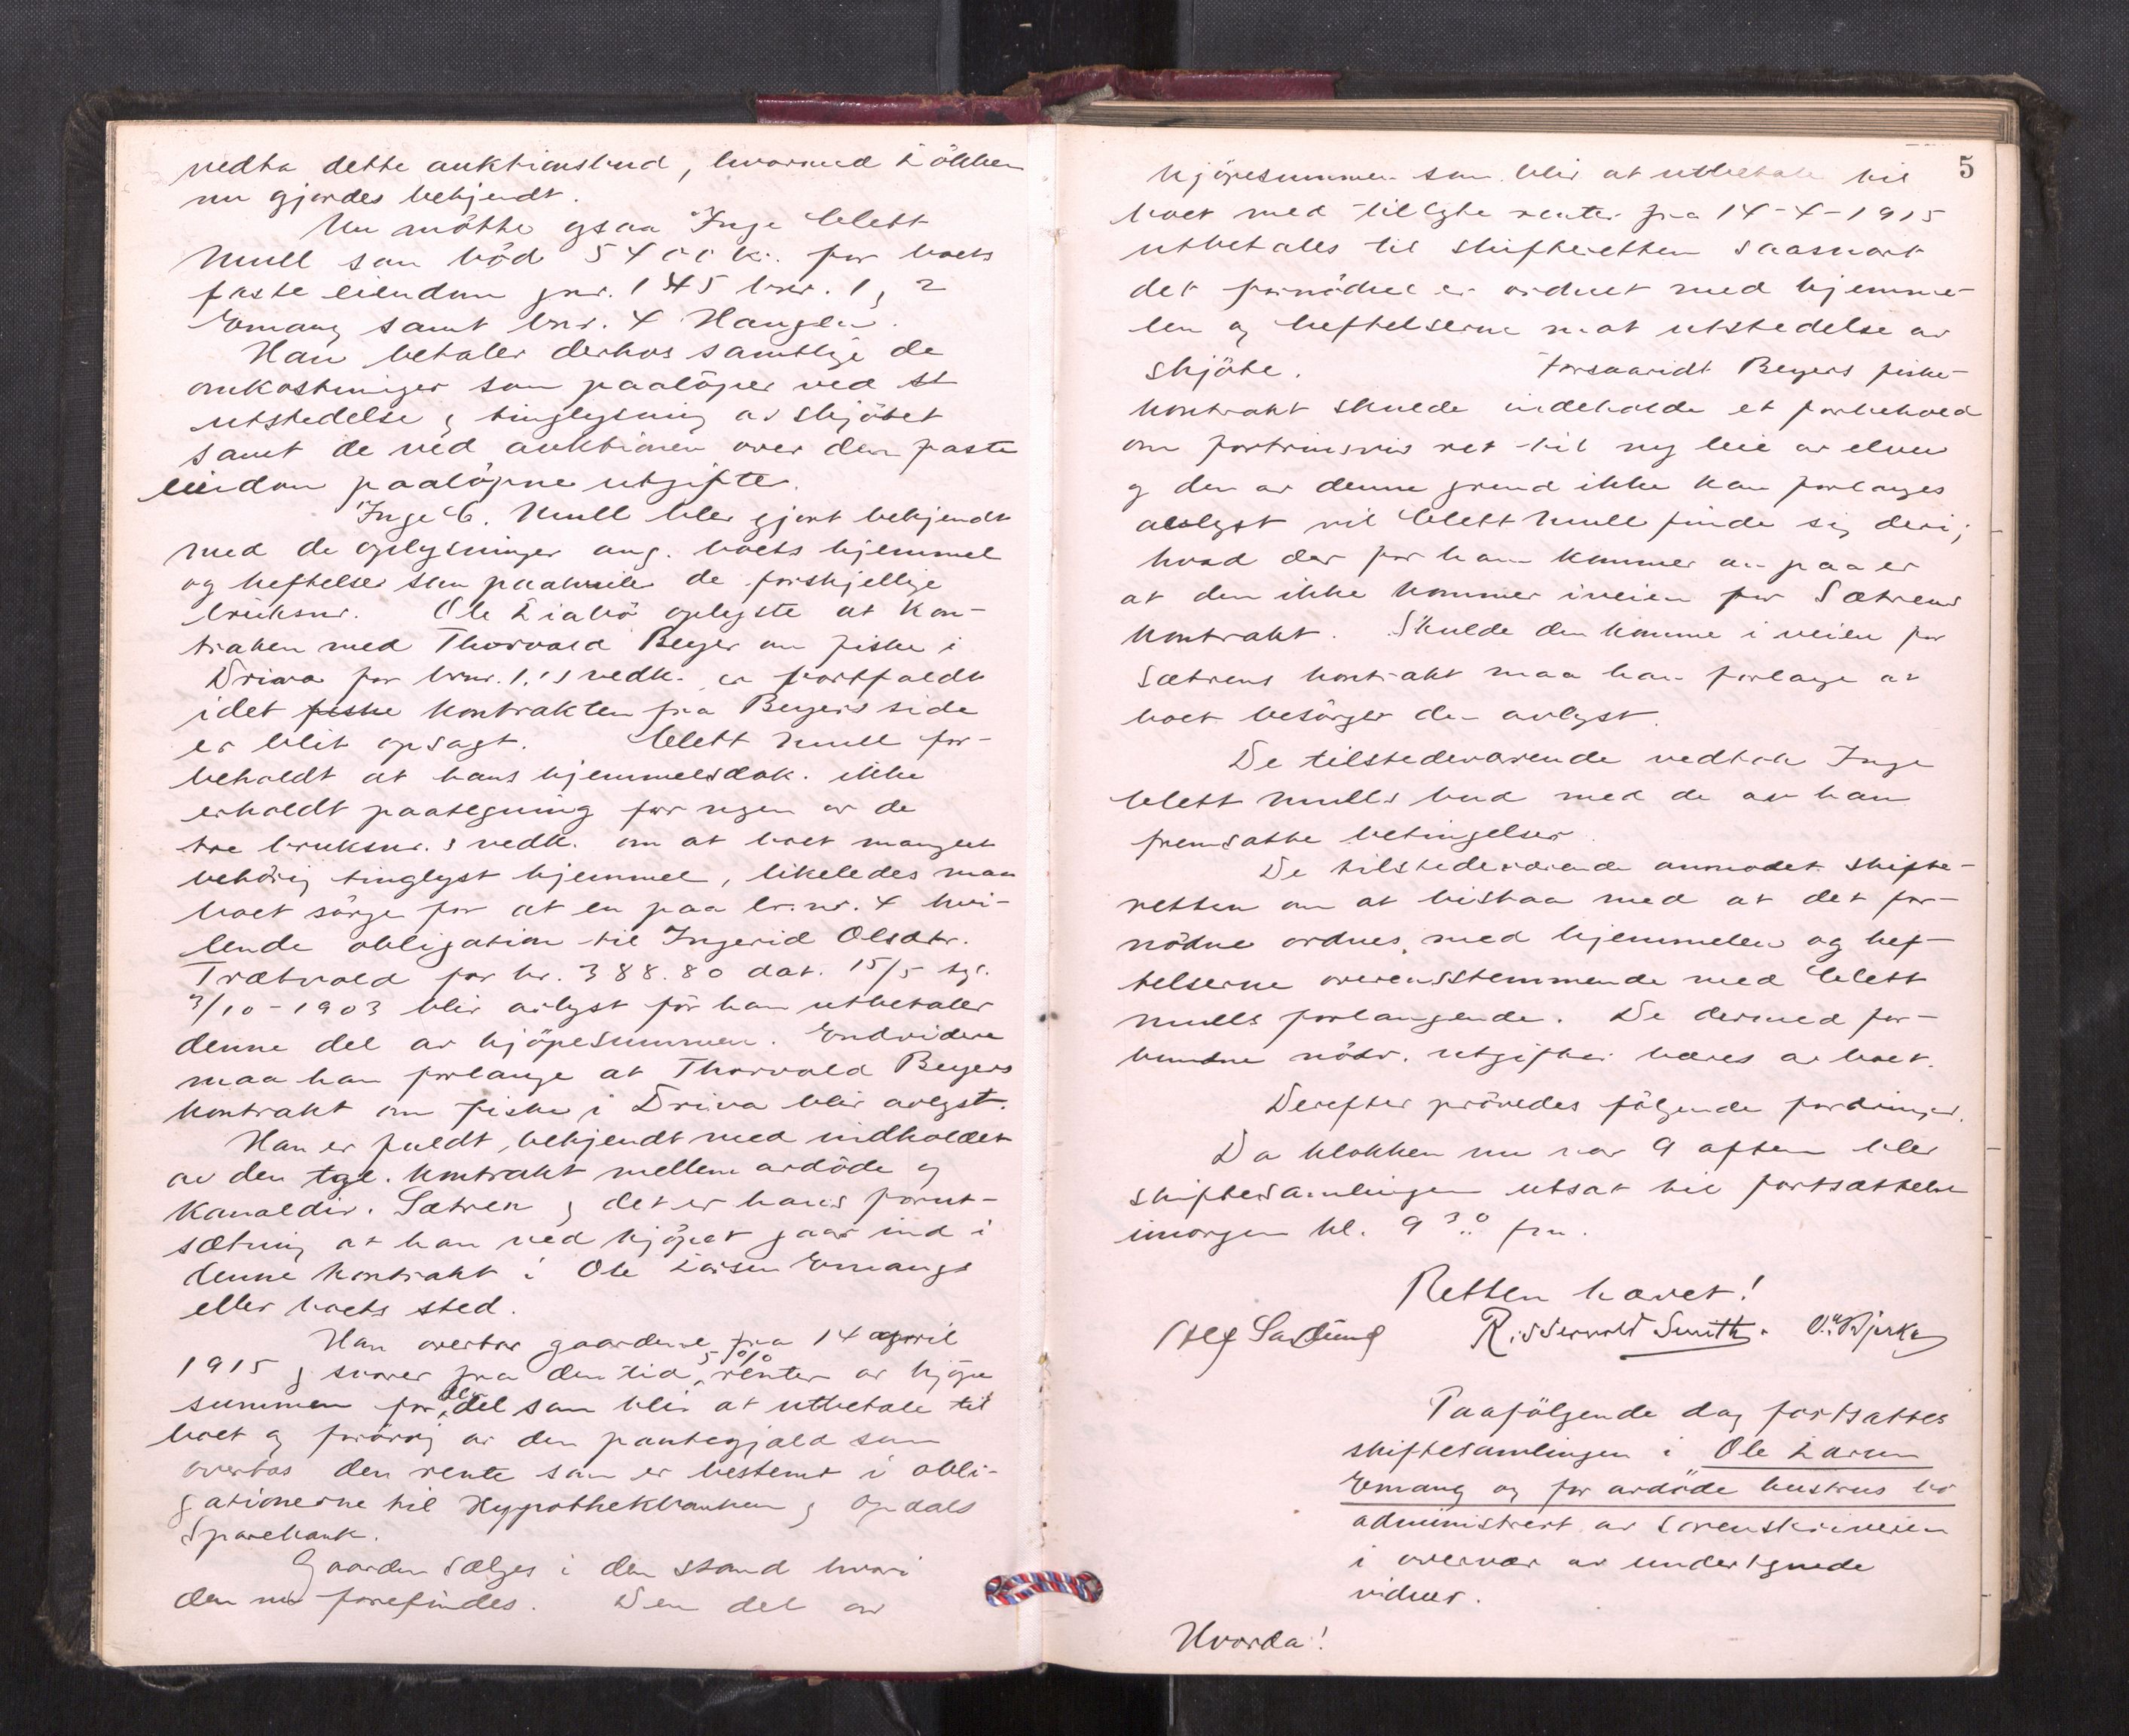 vedta dette auktionsbud, hvormed Løkken
nu gjordes bekjendt.
Nu møtte ogsaa Inge Clett
Mull som bød 5400 kr. for boets
faste eiendom gnr. 145 bnr. 1, 2
Emang samt bnr. 4 Haugen.
Han betaler derhos samtlige de
omkostninger som paaløper ved
utstedelse og tinglysning av skjøtet
samt de ved auktionen over den faste
eiendom paaløpne utgifter.
Inge C. Mull blev gjort bekjendt
med de oplysninger ang. boets hjemmel
og heftelser som paahviler de forskjellige
bruksnr. Ole Liabø oplyste at kon-
trakten med Thorvald Beyer om fiske i
Driva for brnr. 1.s vedk. er bortfaldt
idet fiske kontrakten fra Beyers side
er blit opsagt. Clett Mull for-
beholdt at hans hjemmelsdok. ikke
erholdt paategning for nogen av de
tre bruksnr.s vedk. om at boet manglet
behørig tinglyst hjemmel, likeledes maa
boet sørge for at en paa br.nr. 4 hvi-
lende obligation til Ingerid Olsdtr.
Trætvold for kr. 388.80 dat. 15/5 tgl.
3/10-1903 blir avlyst før han utbetaler
denne del av kjøpesummen. Endvidere
maa han forlange at Thorvald Beyers
kontrakt om fiske i Driva blir avlyst.
Han er fuldt bekjendt med indholdet
av den tgl. kontrakt mellem avdøde og
Kanaldir. Sætren og det er hans forut-
sætning at han ved kjøpet gaar ind i
denne kontrakt i Ole Larsen Emangs
eller boets sted.
Han overtar gaardene fra 14 april
1915 og svarer fra den tid 5 % renter av kjøpe
summen for den del som blir at utbetale til
boet og forøvrig av den pantegjæld som
overtas den rente som er bestemt i obli-
gationerne til Hyppothekbanken og Opdals
Sparebank.
Gaarden sælges i den stand hvori
den nu forefindes. Den del av
5
kjøpesummen som blir at utbetale til
boet med tillagte renter fra 14-4-1915
utbetales til skifteretten saasnart
det fornødne er ordnet med hjemme-
len og heftelserne mot utstedelse av
skjøte. Forsaavidt Beyers fiske-
kontrakt skulde indeholde et forbehold
om fortrinsvis ret til ny leie av elven
og den av denne grund ikke kan forlanges
avlyst vil Clett Mull finde sig deri;
hvad der for ham kommer an paa er
at den ikke kommer iveien for Sætrens
kontrakt. Skulde den komme i veien for
Sætrens kontrakt maa han forlange at
boet besørger den avlyst.
De tilstedeværende vedtok Inge
Clett Mulls bud med de av han
fremsatte betingelser.
De tilstedeværende anmodet skifte-
retten om at bistaa med at det for-
nødne ordnes med hjemmelen og hef-
telserne overensstemmende med Clett
Mulls forlangende. De dermed for-
bundne nødv. utgifter bæres av boet.
Derefter prøvedes følgende fordringer.
Da klokken nu var 9 aften blev
skiftesamlingen utsat til fortsættelse
imorgen kl. 9 30 fm.
Retten hævet!
R. Sserwold Smith. O. Bjerke
Paafølgende dag fortsattes
skiftesamlingen i Ole Larsen
Emang og før avdøde hustrus bo
administrert av sorenskriveren
i overvær av undertegnede
vidner.
Hvorda!